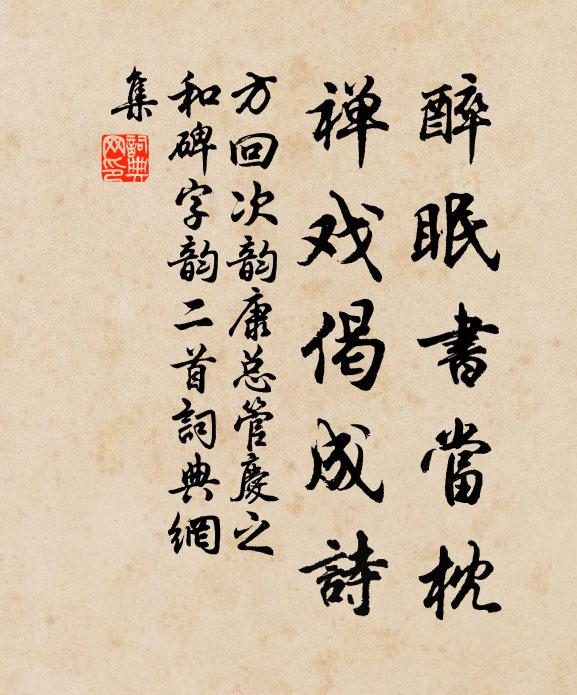 醉眠書當枕
禅戏偈成詩
方回次韵康总管慶之
和碑字韵二首詞典網
集
詞典网印